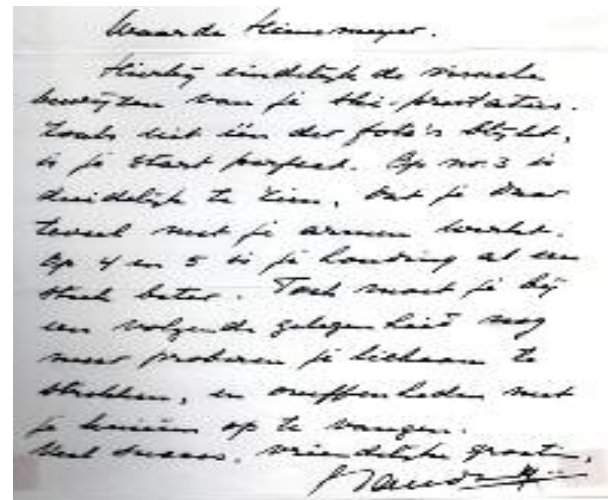 Waarde Hinnemeyer.
Hierbij eindelijk de visuele
bewijzen van je ski-prestaties.
Zoals uit één der foto's blijkt,
is je start perfect. Op nr. 3 is
duidelijk te zien, dat je daar
teveel met je armen werkt.
Op 4 en 5 is je houding al een
stuk beter. Toch moet je bij
een volgende gelegenheid nog
meer proberen je lichaam te
strekken, en oneffenheden met
je knieën op te vangen.
Veel succes, vriendelijke groeten,